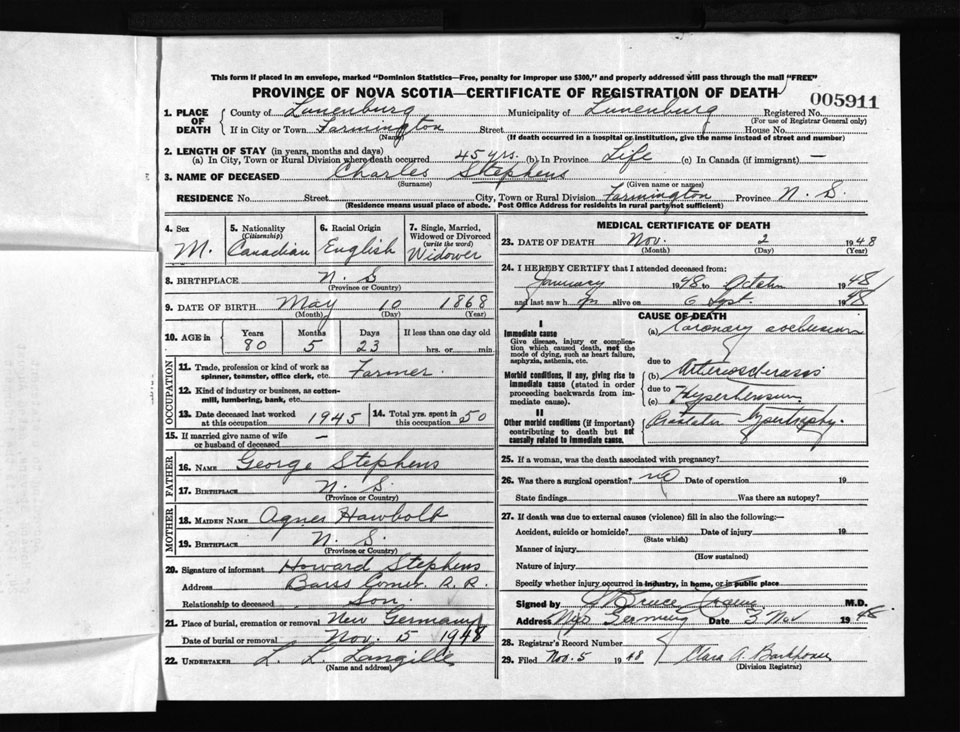 This form if placed in an envelope, marked "Dominion Statistics—Free, penalty for improper use $300," and properly addressed will pass through the mail "FREE"
PROVINCE OF NOVA SCOTIA—CERTIFICATE OF REGISTRATION OF DEATH
005911
1. PLACE OF DEATH County of Lunenburg Municipality of Lunenburg Registered No.
(For use of Registrar General only)
If in City or Town Farmington Street House No.
(Name) (If death occurred in a hospital or institution, give the name instead of street and number)
2. LENGTH OF STAY (in years, months and days)
(a) In City, Town or Rural Division where death occurred 45 yrs. (b) In Province Life (c) In Canada (if immigrant) —
3. NAME OF DECEASED Charles Stephens
(Surname) (Given name or names)
RESIDENCE No. Street City, Town or Rural Division Farmington Province N. S.
(Residence means usual place of abode. Post Office Address for residents in rural parts not sufficient)
4. Sex M.
5. Nationality (Citizenship) Canadian
6. Racial Origin English
7. Single, Married, Widowed or Divorced (write the word) Widower
8. BIRTHPLACE N. S
(Province or Country)
9. DATE OF BIRTH May 10 1868
(Month) (Day) (Year)
10. AGE in Years Months Days If less than one day old
80 5 23 hrs. or min.
OCCUPATION
11. Trade, profession or kind of work as spinner, teamster, office clerk, etc. Farmer.
12. Kind of industry or business, as cotton-mill, lumbering, bank, etc.
13. Date deceased last worked at this occupation 1945
14. Total yrs. spent in this occupation 50
15. If married give name of wife or husband of deceased —
FATHER
16. NAME George Stephens
17. BIRTHPLACE N. S.
(Province or Country)
MOTHER
18. MAIDEN NAME Agnes Hawbolt
19. BIRTHPLACE N. S.
(Province or Country)
20. Signature of informant Howard Stephens
Address Barss Corner R. R.
Relationship to deceased Son.
21. Place of burial, cremation or removal New Germany
Date of burial or removal Nov. 5 1948
22. UNDERTAKER L. L. Langille
(Name and address)
MEDICAL CERTIFICATE OF DEATH
23. DATE OF DEATH Nov. 2 1948
(Month) (Day) (Year)
24. I HEREBY CERTIFY that I attended deceased from:
January 1948 to October 1948
and last saw h im alive on 6 Sept. 1948
CAUSE OF DEATH
I
Immediate cause
Give disease, injury or complication which caused death, not the mode of dying, such as heart failure, asphyxia, asthenia, etc.
(a) Coronary occlusion
due to
Morbid conditions, if any, giving rise to immediate cause (stated in order proceeding backwards from immediate cause).
(b) Arteriosclerosis
due to
(c) Hypertension
II
Other morbid conditions (if important) contributing to death but not causally related to immediate cause.
Prostatic hypertrophy.
25. If a woman, was the death associated with pregnancy?
26. Was there a surgical operation? no Date of operation 19
State findings Was there an autopsy?
27. If death was due to external causes (violence) fill in also the following:—
Accident, suicide or homicide? Date of injury 19
(State which)
Manner of injury
(How sustained)
Nature of injury
Specify whether injury occurred in industry, in home, or in public place
Signed by M.D.
Address New Germany Date 3 Nov 1948.
28. Registrar's Record Number
29. Filed Nov. 5 1948 Clara A. Barkhouse
(Division Registrar)